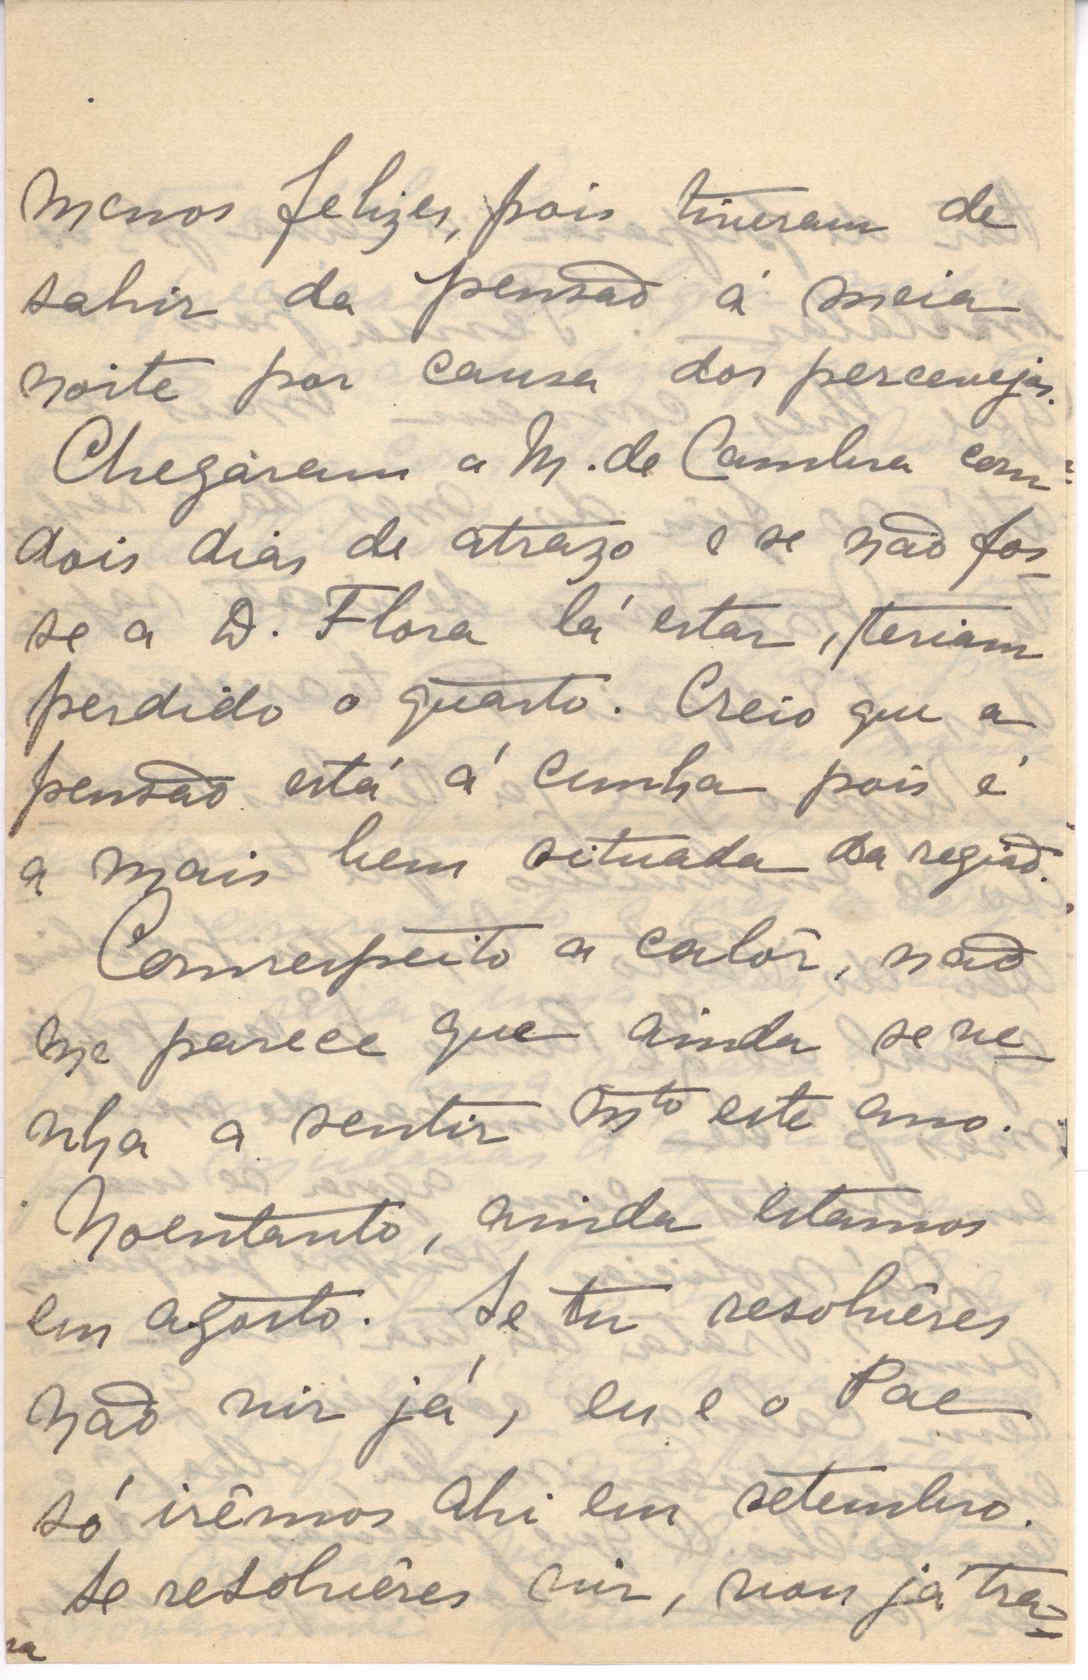 menos felizes, pois tiveram de
sahir da pensão á meia
noite por causa dos percevejos.
Chegáram a M. de Cambra com
dois dias de atrazo e se não fos-
se a D. Flora lá estar, teriam
perdido o quarto. Creio que a
pensão está á cunha pois é
a mais bem situada da região.
Comrespeito a calôr, não
me parece que ainda se ve-
nha a sentir mto este ano.
Noentanto, ainda estamos
em agosto. Se tu resolvêres
não vir já, eu e o Pae
só irêmos ahi em setembro.
Se resolvêres vir, vou já tra-